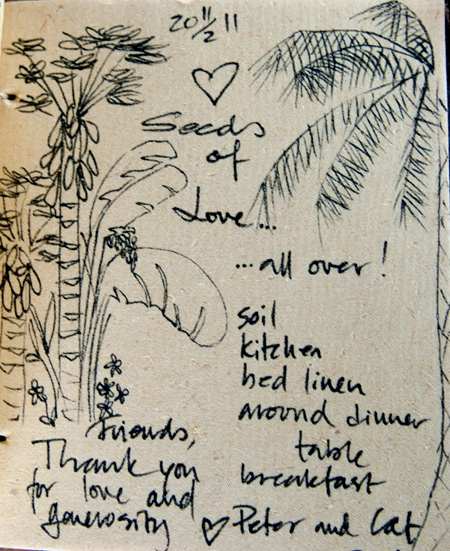 20 11/2 11
Seeds
of
Love...
...all over!
soil
kitchen
bed linen
around dinner
table
breakfast
friends,
Thank you
for love and
generosity
Peter and Cat